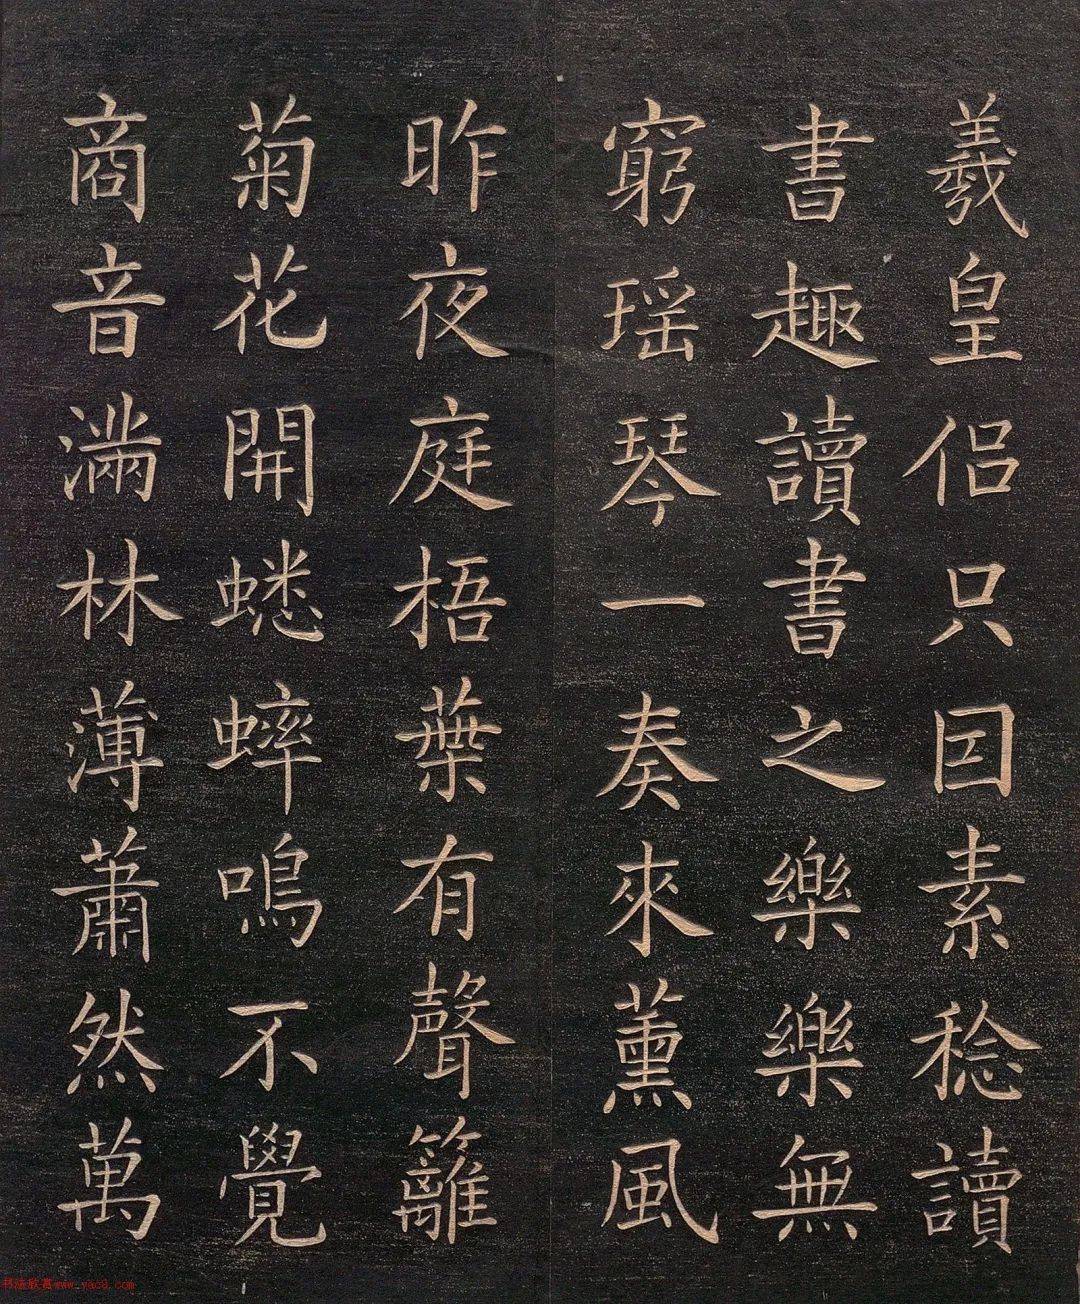 羲皇侣只囙素稔讀
書趣讀書之樂樂無
窮瑶琴一奏來薰風
昨夜庭梧葉有聲籬
菊花開蟋蟀鳴不覺
商音滿林薄蕭然萬
书法欣赏www.yac8.com